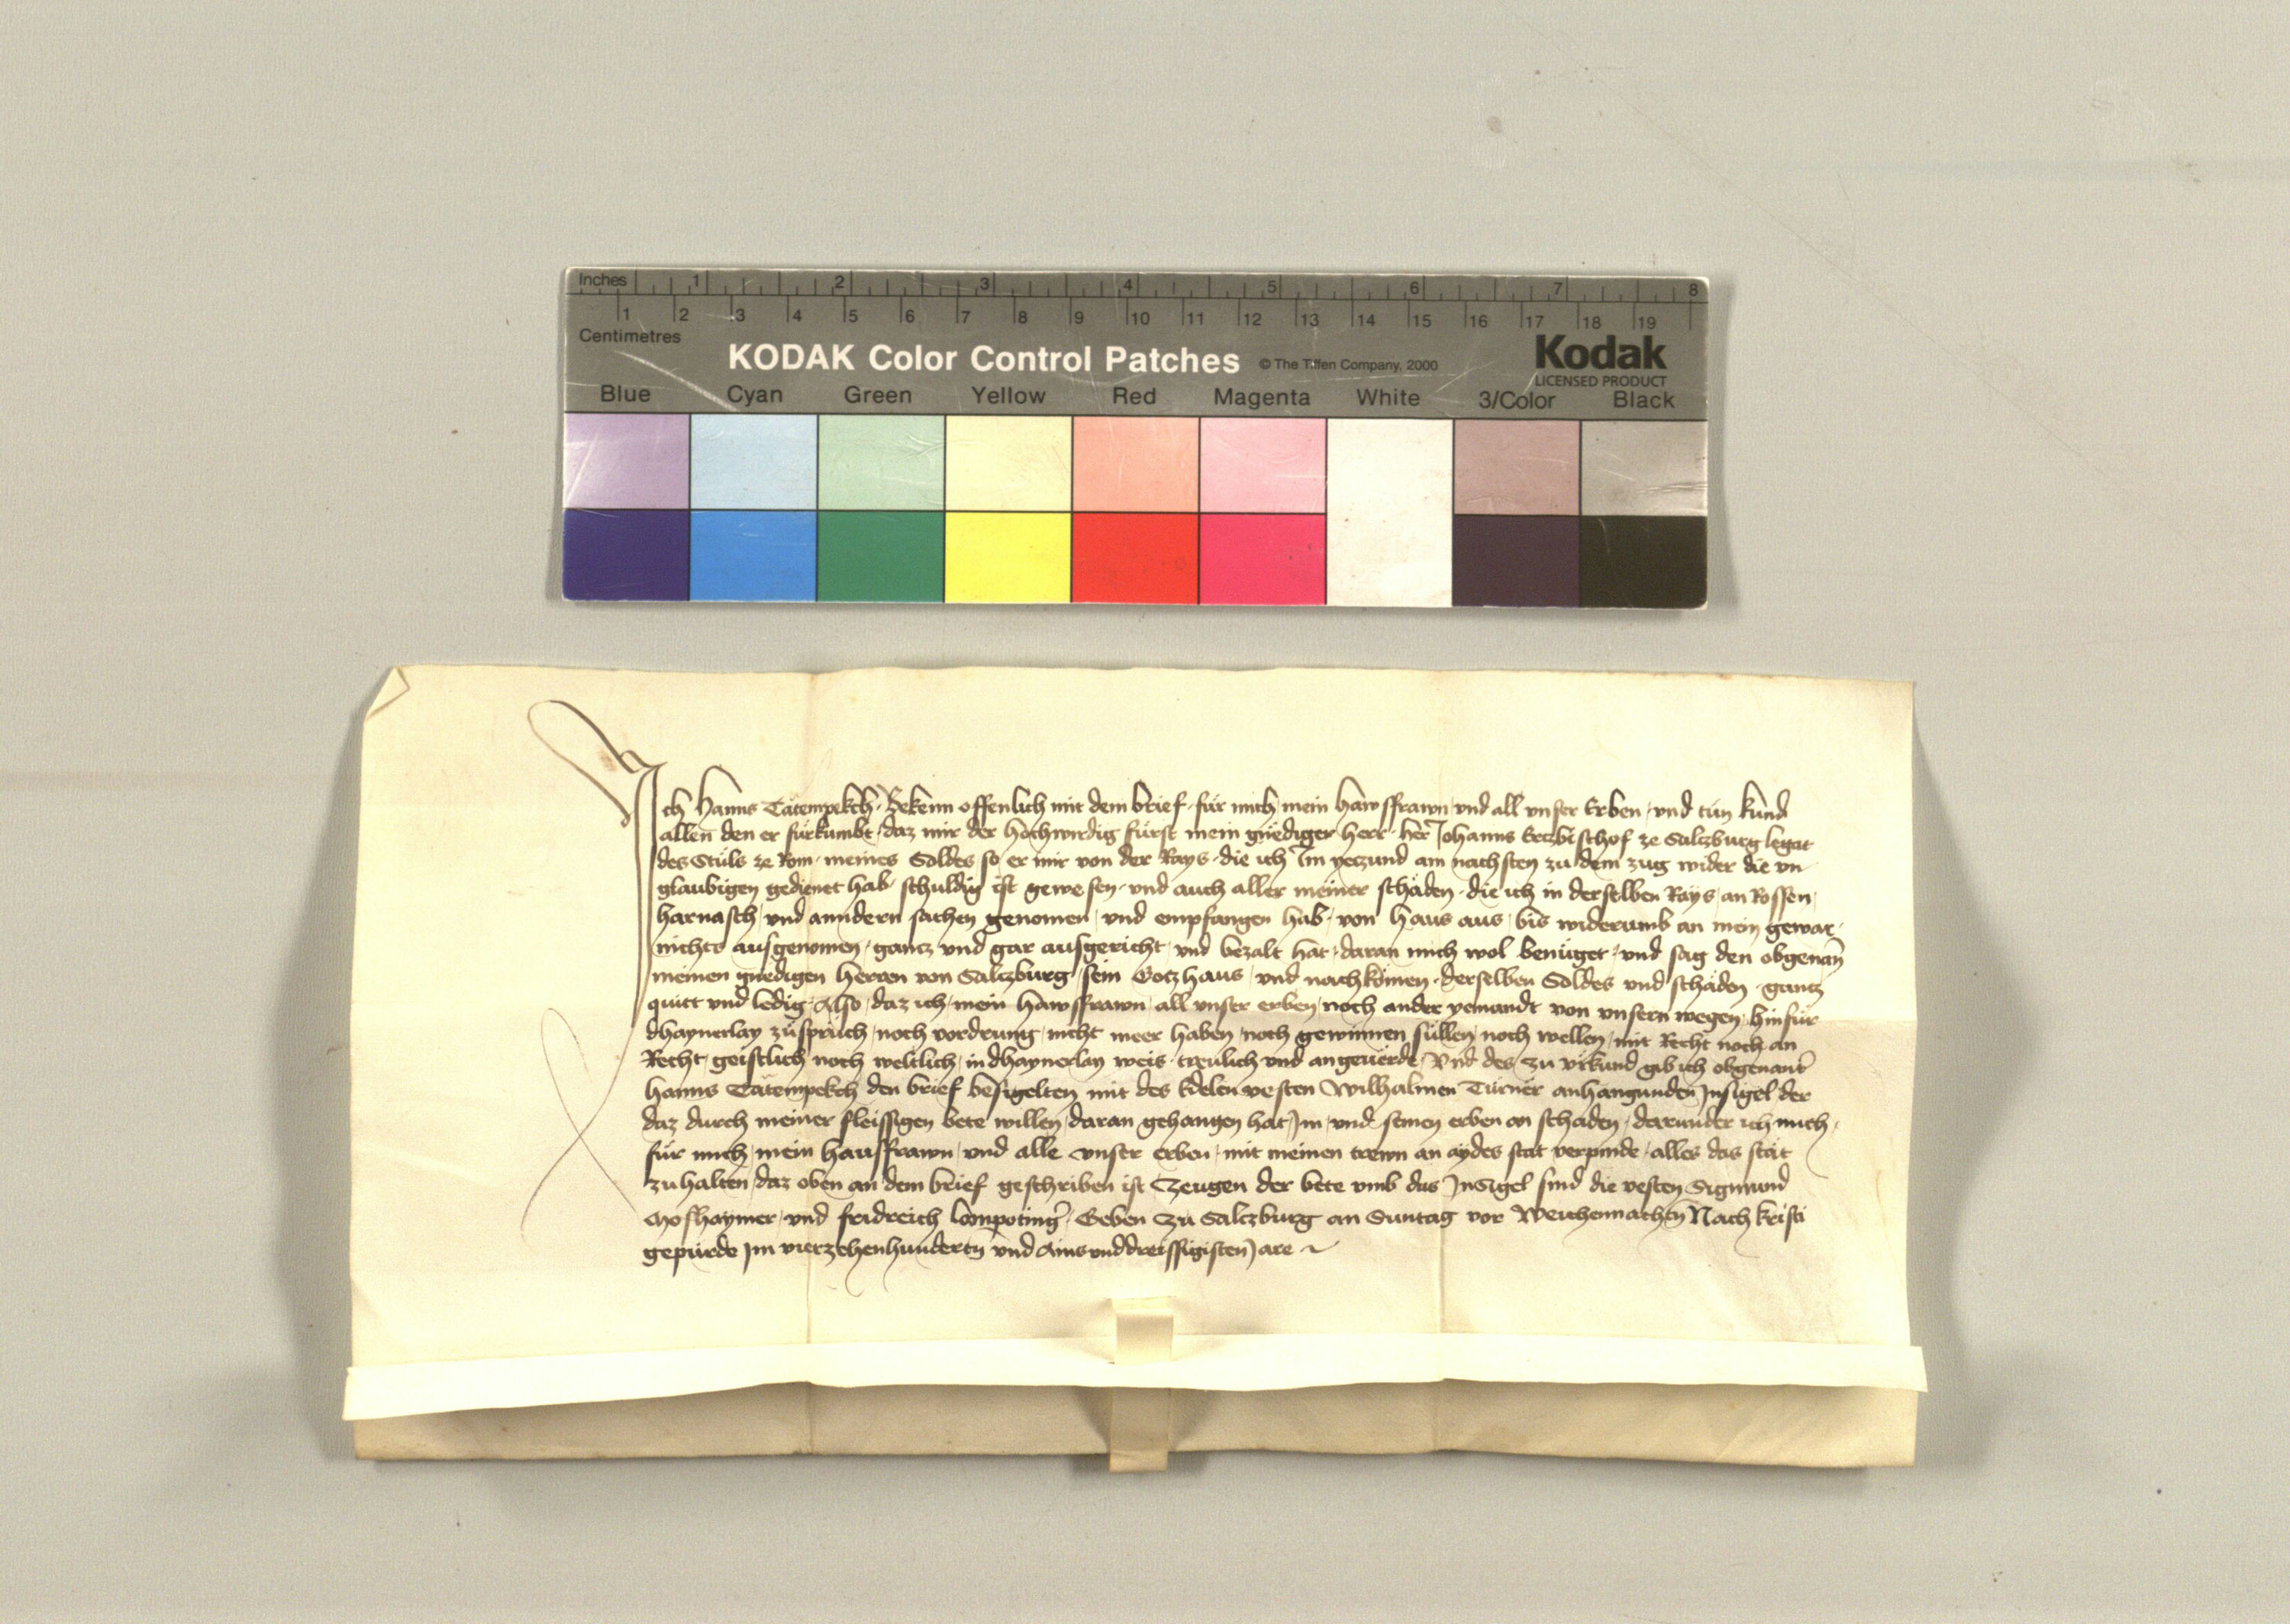 Inches 1 2 3 4 5 6 7 8
1 2 3 4 5 6 7 8 9 10 11 12 13 14 15 16 17 18 19
Centimetres
KODAK Color Control Patches © The Tiffen Company, 2000 Kodak
LICENSED PRODUCT
Blue Cyan Green Yellow Red Magenta White 3/Color Black
Ich Hanns Tätempekch Bekenn offenlich mit dem brief für mich mein hawsfrawn vnd all vnser Erben vnd tün kund
allen den er fürkumbt daz mir der hochwirdig fürst mein gnediger herr her Johanns Erczbischof ze Salczburg legat
des Stüls ze Rom meines Soldes so er mir von der Rays die ich Im yeczund am nachsten zu dem zug wider die vn
glaubigen gedienet hab schuldig ist gewesen vnd auch aller meiner schäden die ich in derselben Rays an Rossen
harnasch vnd anndern sachen genomen vnd empfangen hab von haus aus bis widerumb an mein gewar
nichts ausgenomen gancz vnd gar ausgericht vnd bezalt hat daran mich wol benüget vnd sag den obgenan̄
meinen gnedigen herren von Salczburg sein Gotzhaus vnd nachkömen derselben Soldes vnd schäden gancz
quitt vnd ledig Also daz ich mein hawsfrawn all vnser erben noch ander yemandt von vnsern wegen hinfür
dhaynerlay züsprüch noch vordrung nicht meer haben noch gewinnen süllen noch wellen mit Recht noch an
Recht geistlich noch weltlich in dhaynerlay weis treulich vnd angeuerde Vnd des zu vrkund gib ich obgenant̄
Hanns Tätempekch den brief besigelten mit des Edelen vesten Wilhalmen Turner anhangunden Insigel der
daz durch meiner fleissigen bete willen daran gehangen hat Im vnd seinen erben an schaden darunder ich mich
für mich mein hausfrawn vnd alle vnser erben mit meinen trewn an aydes stat verpinde alles das stät
zu halten daz oben an dem brief geschriben ist Czeugen der bete vmb das Insigel sind die vesten Sigmund
Moshaymer vnd fridreich Lampoting̛ Geben zu Salczburg an Suntag vor Weichennachten Nach kristi
gepürde Im vierzehenhundertn vnd Ainsvnddreissigisten Jare